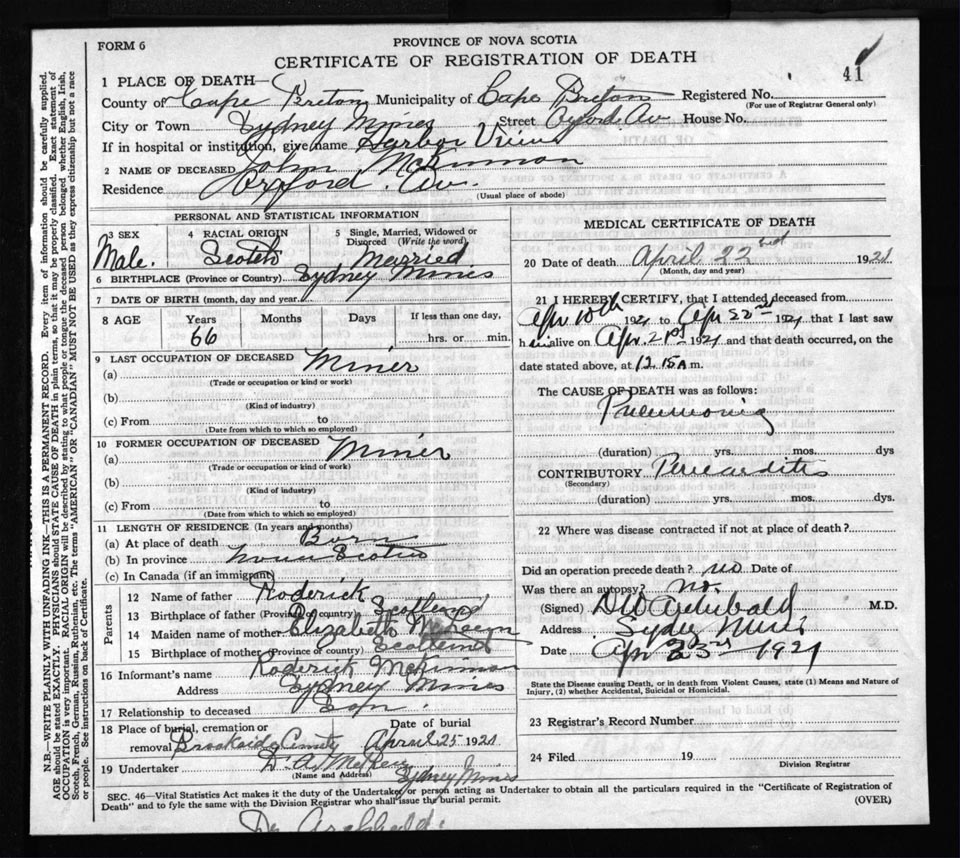 FORM 6
PROVINCE OF NOVA SCOTIA
CERTIFICATE OF REGISTRATION OF DEATH
41
1 PLACE OF DEATH—
County of Cape Breton Municipality of Cape Breton Registered No.
(For use of Registrar General only)
City or Town Sydney Mines Street Oxford Av House No.
If in hospital or institution, give name Harbor View
2 NAME OF DECEASED John McKinnon
Residence Oxford Av.
(Usual place of abode)
PERSONAL AND STATISTICAL INFORMATION
3 SEX 4 RACIAL ORIGIN 5 Single, Married, Widowed or Divorced (Write the word)
Male. Scotch Married
6 BIRTHPLACE (Province or Country) Sydney Mines
7 DATE OF BIRTH (month, day and year)
8 AGE Years Months Days If less than one day,
66 hrs. or min.
9 LAST OCCUPATION OF DECEASED
(a) Miner
(Trade or occupation or kind or work)
(b)
(Kind of industry)
(c) From to
(Date from which to which so employed)
10 FORMER OCCUPATION OF DECEASED
(a) Miner
(Trade or occupation or kind or work)
(b)
(Kind of industry)
(c) From to
(Date from which to which so employed)
11 LENGTH OF RESIDENCE (In years and months)
(a) At place of death Born
(b) In province Nova Scotia
(c) In Canada (if an immigrant)
Parents
12 Name of father Roderick
13 Birthplace of father (Province or country) Scotland
14 Maiden name of mother Elizabeth
15 Birthplace of mother (Province or country) Scotland
16 Informant's name Roderick McKinnon
Address Sydney Mines
17 Relationship to deceased Son.
18 Place of burial, cremation or removal Date of burial
Brookside April 25 1921
19 Undertaker
(Name and Address) Sydney Mines
MEDICAL CERTIFICATE OF DEATH
20 Date of death April 22nd 1921
(Month, day and year)
21 I HEREBY CERTIFY, that I attended deceased from
Apr 10th 1921 to Apr 22nd 1921 that I last saw
him alive on Apr. 21st 1921 and that death occurred, on the
date stated above, at 12 15 A m.
The CAUSE OF DEATH was as follows:
Pneumonia
(duration) yrs. mos. dys
CONTRIBUTORY Pericarditis
(Secondary)
(duration) yrs. mos. dys.
22 Where was disease contracted if not at place of death?
Did an operation precede death? no Date of
Was there an autopsy? no.
(Signed) DW Archibald M.D.
Address Sydney Mines
Date Apr 23rd 1921
State the Disease causing Death, or in death from Violent Causes, state (1) Means and Nature of
Injury, (2) whether Accidental, Suicidal or Homicidal.
23 Registrar's Record Number
24 Filed 19
Division Registrar
SEC. 46—Vital Statistics Act makes it the duty of the Undertaker or person acting as Undertaker to obtain all the particulars required in the "Certificate of Registration of
Death" and to fyle the same with the Division Registrar who shall issue the burial permit.
(OVER)
Dr Archibald.
N.B.—WRITE PLAINLY WITH UNFADING INK—THIS IS A PERMANENT RECORD. Every item of information should be carefully supplied.
AGE should be stated EXACTLY. PHYSICIANS should STATE CAUSE OF DEATH in plain terms, so that it may be properly classified. Exact statement of
OCCUPATION is very important. RACIAL ORIGIN will be described by stating to what people or tongue the deceased person belonged, whether English, Irish,
Scotch, French, German, Russian, Ruthenian, etc. The terms "AMERICAN" OR "CANADIAN" MUST NOT BE USED as they express citizenship but not a race
or people. See instructions on back of Certificate.